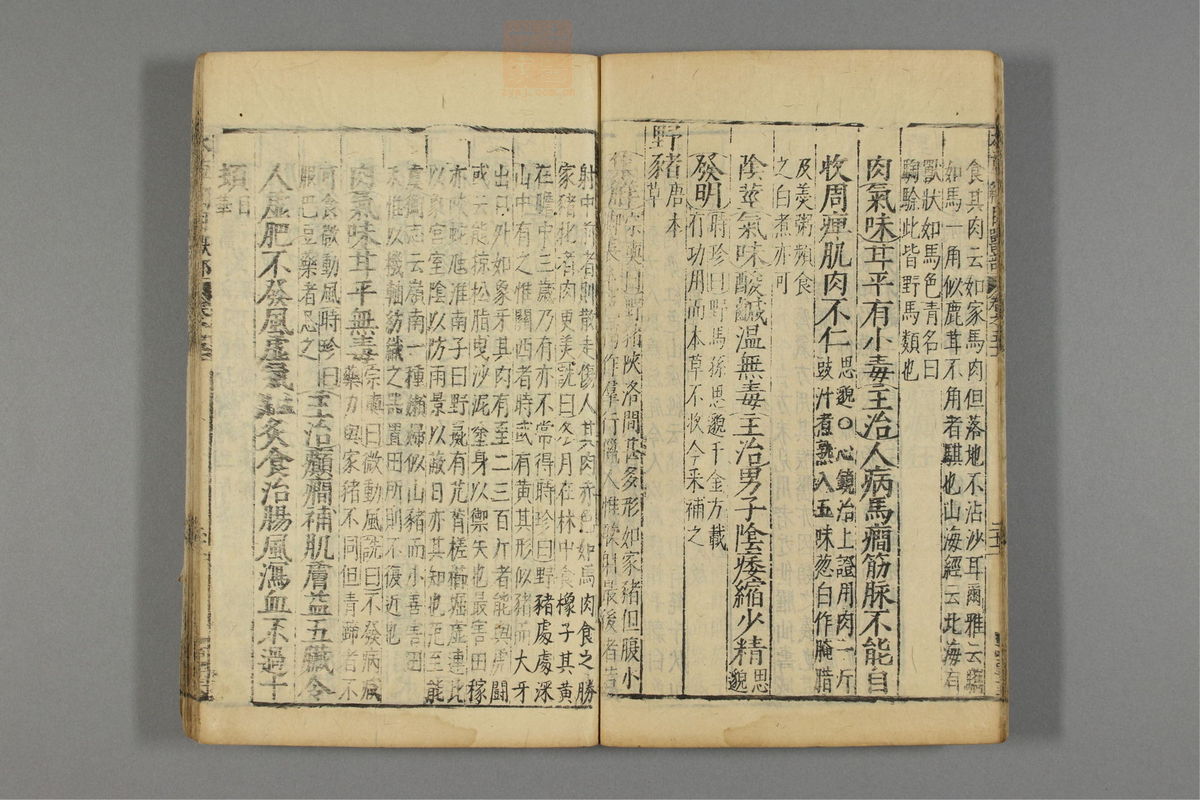 食其肉云如家馬肉但落地不沾沙耳爾雅云
如馬一角似鹿茸不角者騏也山海經云北海有
獸狀如馬色青名曰
騊駼此皆野馬類也
肉氣味甘平有小毒主治人病馬癎筋脉不能自
收周痺肌肉不仁思邈○心鏡治上證用肉一斤
豉汁煮熟入五味葱白作腌腊
及羹粥頻食
之白煮亦可
陰莖氣味酸鹹溫無毒主治男子陰痿縮少精思
邈
發明時珍曰野馬孫思邈千金方載
有功用而本草不收今采補之
野豬唐本
草
宗奭曰野豬陝洛間甚多形如家豬但腹小
作羣行獵人惟射最後者
射中前者則散走傷人其肉赤色如馬肉食之勝
家豬牝者肉更美詵曰冬月在林中食橡子其黃
在膽中三歲乃有亦不常得時珍曰野豬處處深
山中有之惟關西者時或有黃其形似豬而大牙
出口外如象牙其肉有至二三百斤者能與虎鬪
或云能掠松脂曳沙泥塗身以禦矢也最害田稼
亦啖蛇虺淮南子曰野彘有艽莦槎櫛堀虛連比
以象宮室陰以防雨景以蔽日亦其知也范至能
虞衡志云嶺南一種嬾婦似山豬而小善害田
禾惟以機軸紡織之器置田所則不復近也
肉氣味甘平無毒宗奭曰微動風詵曰不發病減
藥力與家豬不同但青蹄者不
可食微動風時珍曰
服巴豆藥者忌之
主治癲癎補肌膚益五臟令
人虛肥不發風虛氣炙食治腸風瀉血不過十
頓日
華